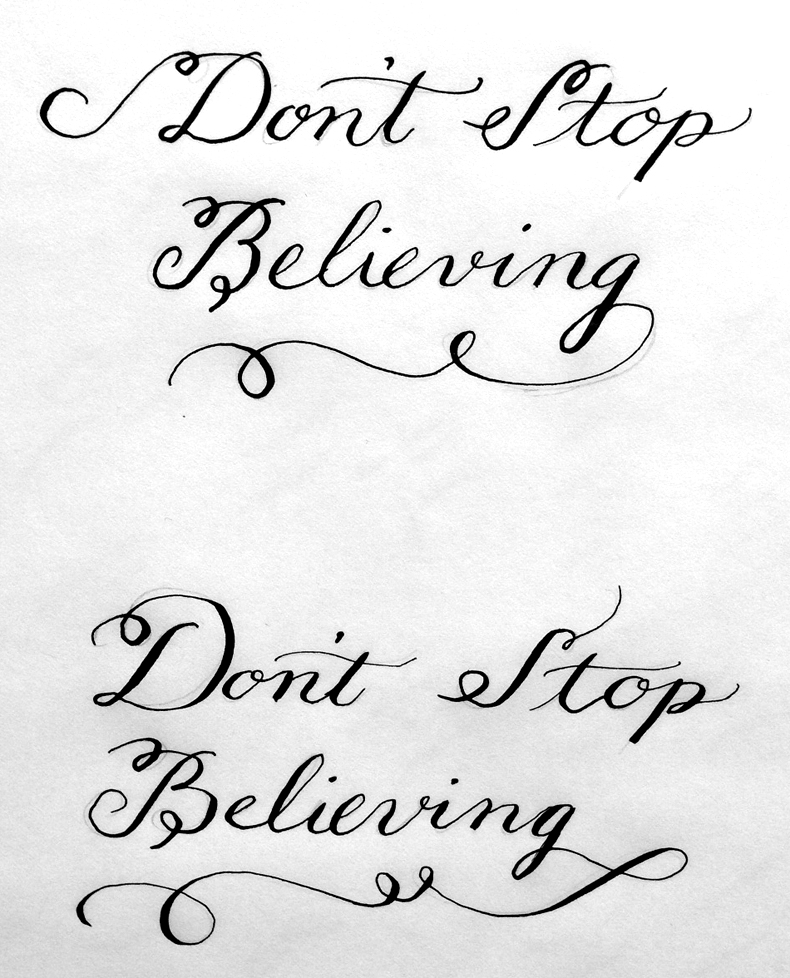 Don't Stop
Believing
Don't Stop
Believing